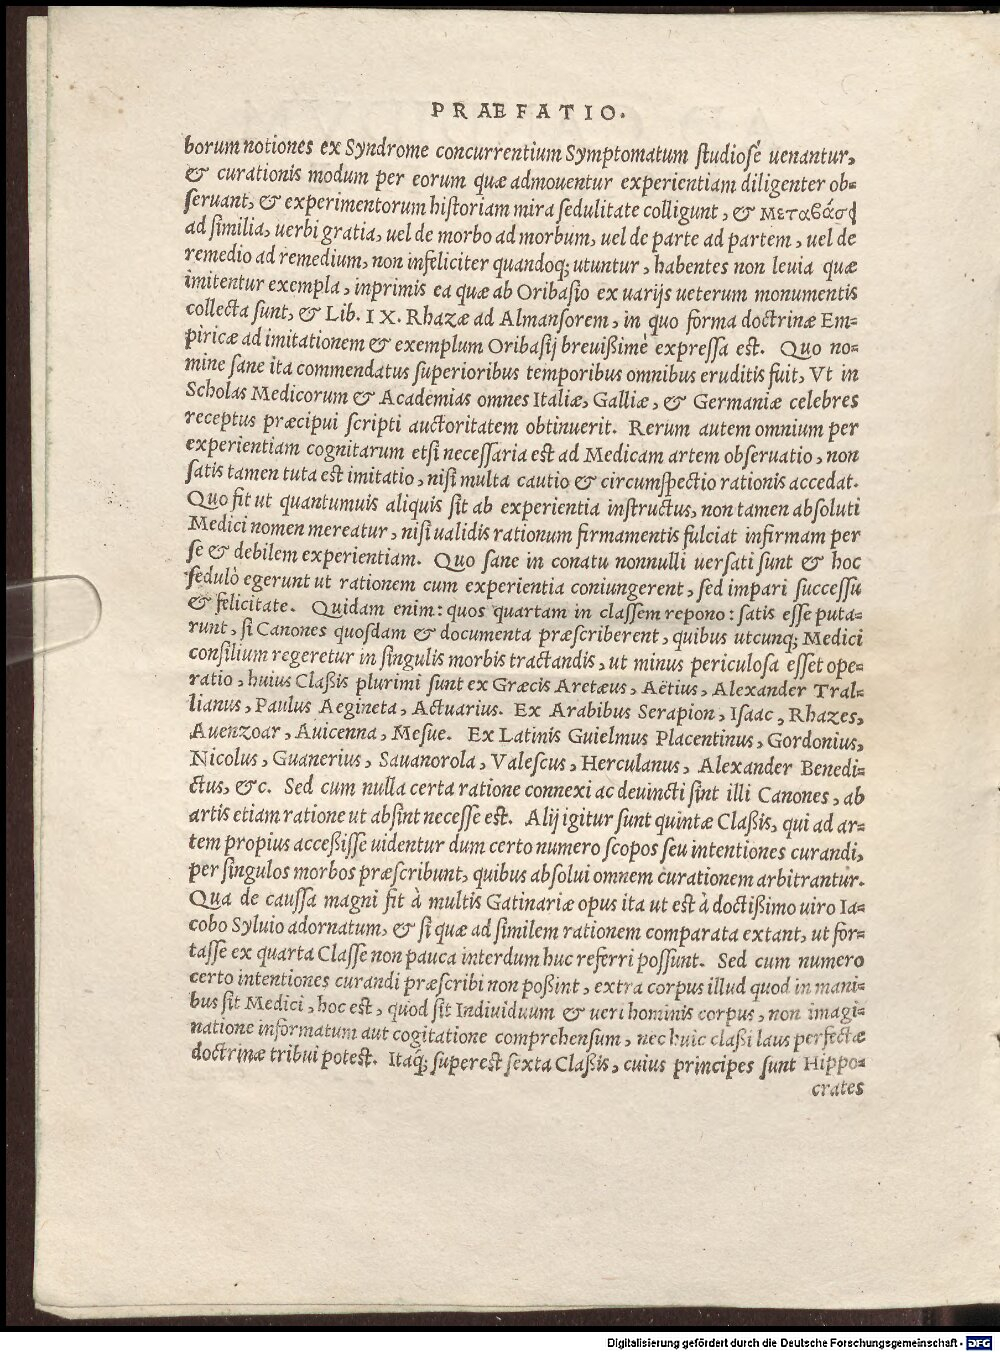 PRAEFATIO.
borum notiones ex Syndrome concurrentium Symptomatum studiosè uenantur,
& curationis modum per eorum quæ admouentur experientiam diligenter ob=
seruant, & experimentorum historiam mira sedulitate colligunt, & μεταβάσι
ad similia, uerbi gratia, uel de morbo ad morbum, uel de parte ad partem, uel de
remedio ad remedium, non infeliciter quandoq; utuntur, habentes non leuia quæ
imitentur exempla, inprimis ea quæ ab Oribasio ex uarijs ueterum monumentis
collecta sunt, & Lib. IX. Rhazæ ad Almansorem, in quo forma doctrinæ Em=
piricæ ad imitationem & exemplum Oribasij breuißimè expressa est. Quo no=
mine sane ita commendatus superioribus temporibus omnibus eruditis fuit, Vt in
Scholas Medicorum & Academias omnes Italiæ, Galliæ, & Germaniæ celebres
receptus præcipui scripti auctoritatem obtinuerit. Rerum autem omnium per
experientiam cognitarum etsi necessaria est ad Medicam artem obseruatio, non
satis tamen tuta est imitatio, nisi multa cautio & circumspectio rationis accedat.
Quo fit ut quantumuis aliquis sit ab experientia instructus, non tamen absoluti
Medici nomen mereatur, nisi ualidis rationum firmamentis fulciat infirmam per
se & debilem experientiam. Quo sane in conatu nonnulli uersati sunt & hoc
sedulò egerunt ut rationem cum experientia coniungerent, sed impari successu
& felicitate. Quidam enim: quos quartam in classem repono: satis esse puta=
runt, si Canones quosdam & documenta præscriberent, quibus utcunq; Medici
consilium regeretur in singulis morbis tractandis, ut minus periculosa esset ope=
ratio, huius Claßis plurimi sunt ex Græcis Aretæus, Aëtius, Alexander Tral=
lianus, Paulus Aegineta, Actuarius. Ex Arabibus Serapion, Isaac, Rhazes,
Auenzoar, Auicenna, Mesue. Ex Latinis Guielmus Placentinus, Gordonius,
Nicolus, Guanerius, Sauanorola, Valescus, Herculanus, Alexander Benedi=
ctus, &c. Sed cum nulla certa ratione connexi ac deuincti sint illi Canones, ab
artis etiam ratione ut absint necesse est. Alij igitur sunt quintæ Claßis, qui ad ar=
tem propius acceßisse uidentur dum certo numero scopos seu intentiones curandi,
per singulos morbos præscribunt, quibus absolui omnem curationem arbitrantur.
Qua de caussa magni fit à multis Gatinariæ opus ita ut est à doctißimo uiro Ia=
cobo Syluio adornatum, & si quæ ad similem rationem comparata extant, ut for=
tasse ex quarta Classe non pauca interdum huc referri possunt. Sed cum numero
certo intentiones curandi præscribi non poßint, extra corpus illud quod in mani=
bus sit Medici, hoc est, quod sit Indiuiduum & ueri hominis corpus, non imagi=
natione informatum aut cogitatione comprehensum, nec huic claßi laus perfectæ
doctrinæ tribui potest. Itaq; superest sexta Claßis, cuius principes sunt Hippo=
crates
Digitalisierung gefördert durch die Deutsche Forschungsgemeinschaft - DFG